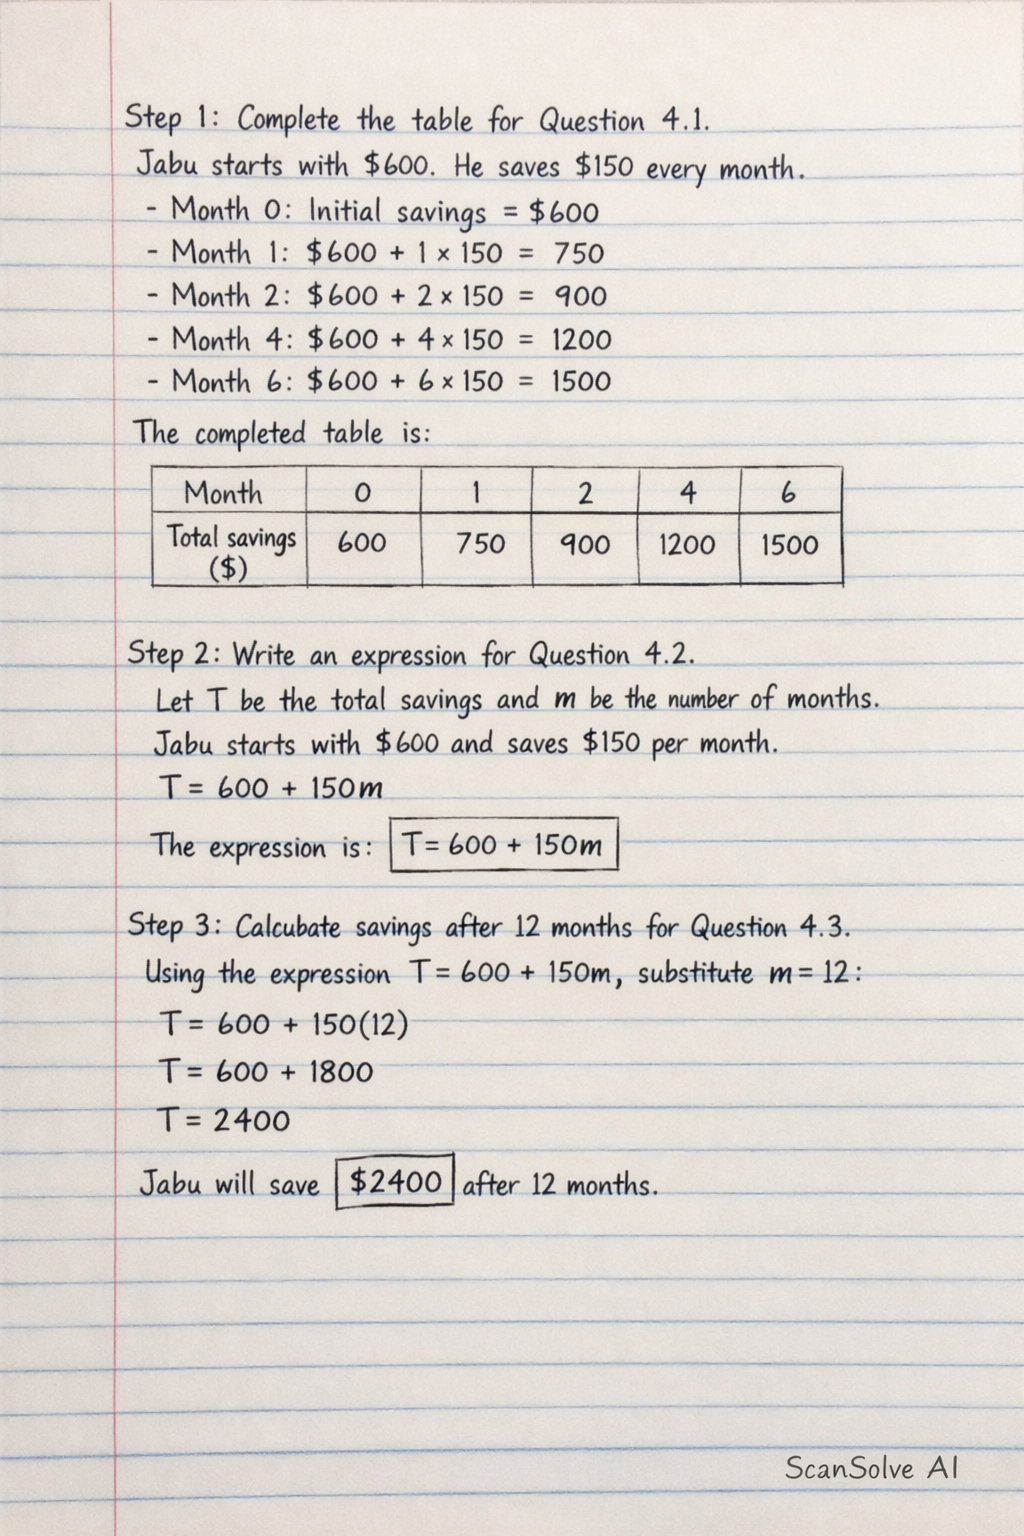 Step 1: Complete the table for Question 4.1.
Jabu starts with $600. He saves $150 every month.
- Month 0: Initial savings = $600
- Month 1: $600 + 1 × 150 = 750
- Month 2: $600 + 2 × 150 = 900
- Month 4: $600 + 4 × 150 = 1200
- Month 6: $600 + 6 × 150 = 1500
The completed table is:
Month 0 1 2 4 6
Total savings ($) 600 750 900 1200 1500
Step 2: Write an expression for Question 4.2.
Let T be the total savings and m be the number of months.
Jabu starts with $600 and saves $150 per month.
T = 600 + 150m
The expression is: T = 600 + 150m
Step 3: Calcubate savings after 12 months for Question 4.3.
Using the expression T = 600 + 150m, substitute m = 12:
T = 600 + 150(12)
T = 600 + 1800
T = 2400
Jabu will save $2400 after 12 months.
ScanSolve AI